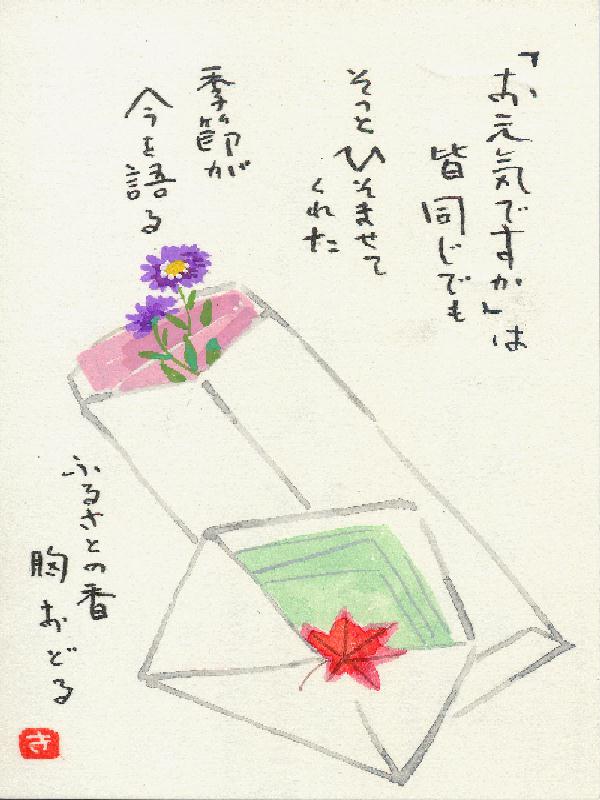 「お元気ですか」は
皆同じでも
そっとひそませて
くれた
季節が
今を語る
ふるさとの香
胸おどる
き